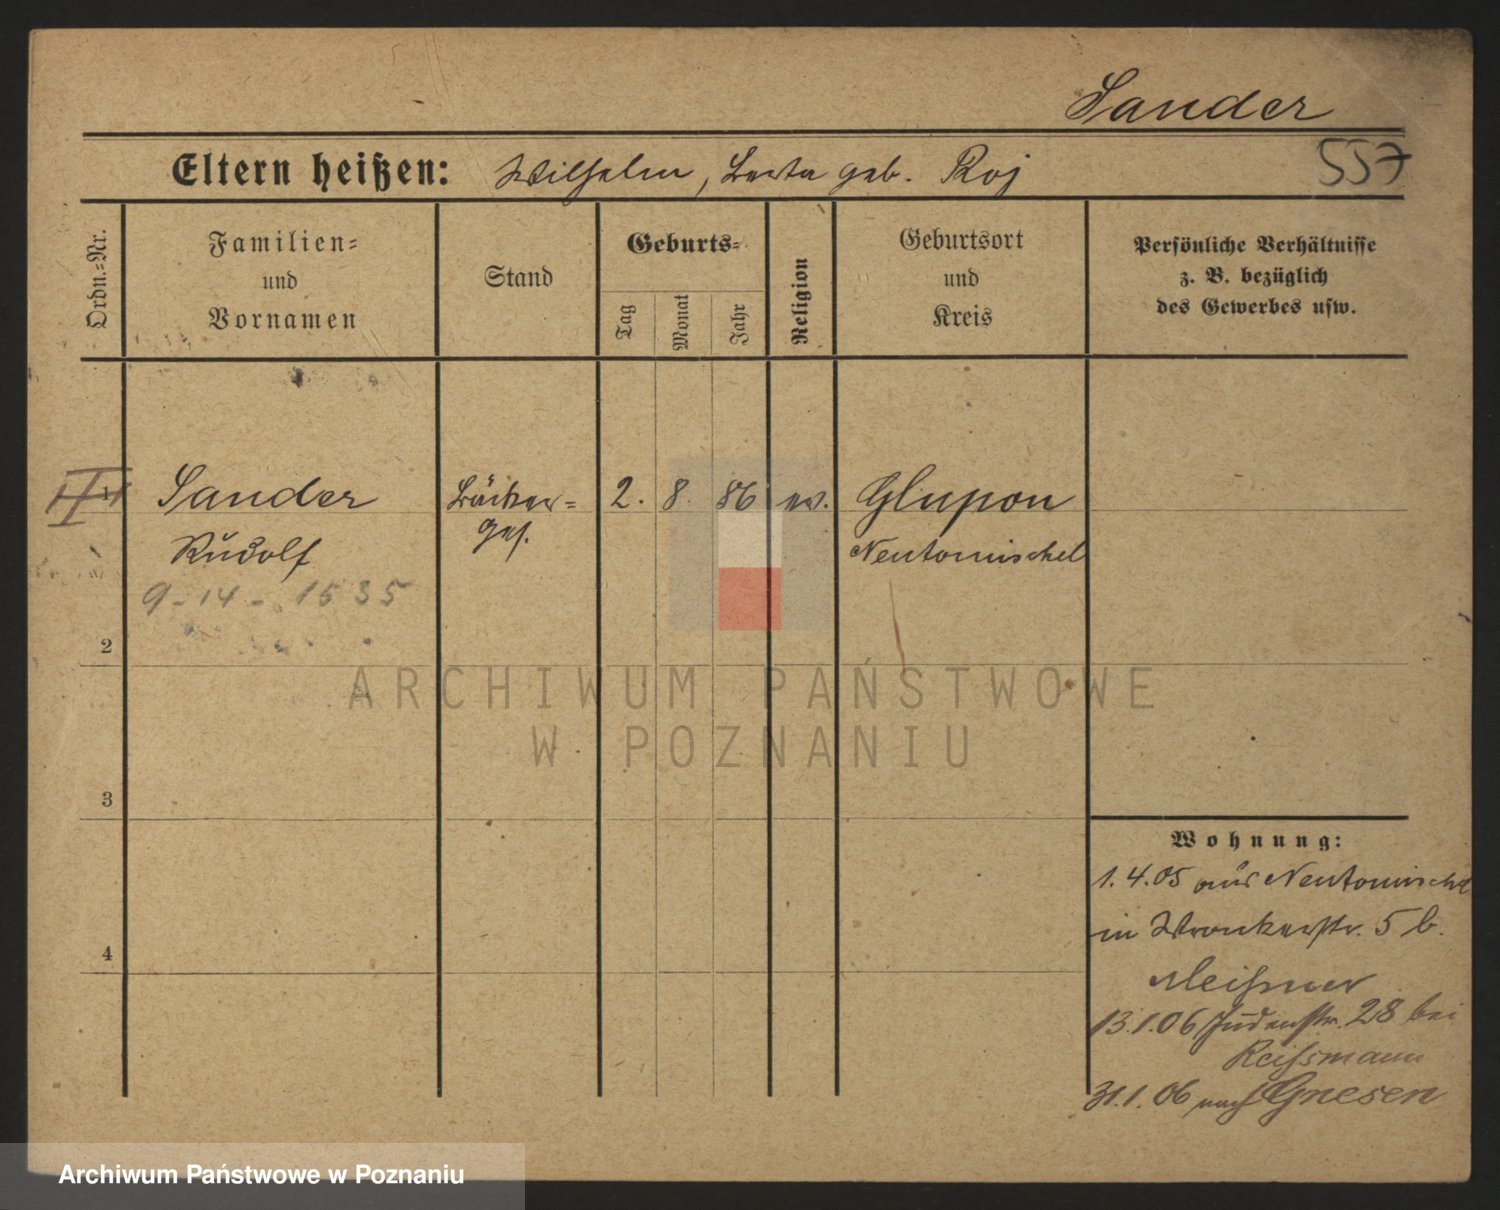 Sander
Eltern heißen: Wilhelm, Berta geb. Roj
557
Ordn.=Nr.
Familien=
und
Vornamen
Stand
Geburts=
Tag
Monat
Jahr
Religion
Geburtsort
und
Kreis
Persönliche Verhältnisse
z. B. bezüglich
des Gewerbes usw.
Sander
Rudolf
9-14-1535
Bäcker=
ges.
2. 8. 86
ev.
Glupon
Neutomischel
2
3
4
Wohnung:
1.4.05 aus Neutomischel
in Wronkerstr. 5 b.
Meißner
13.1.06 Judenstr. 28 bei
Reissmann
31.1.06 nach Gnesen
ARCHIWUM PAŃSTWOWE
W POZNANIU
Archiwum Państwowe w Poznaniu